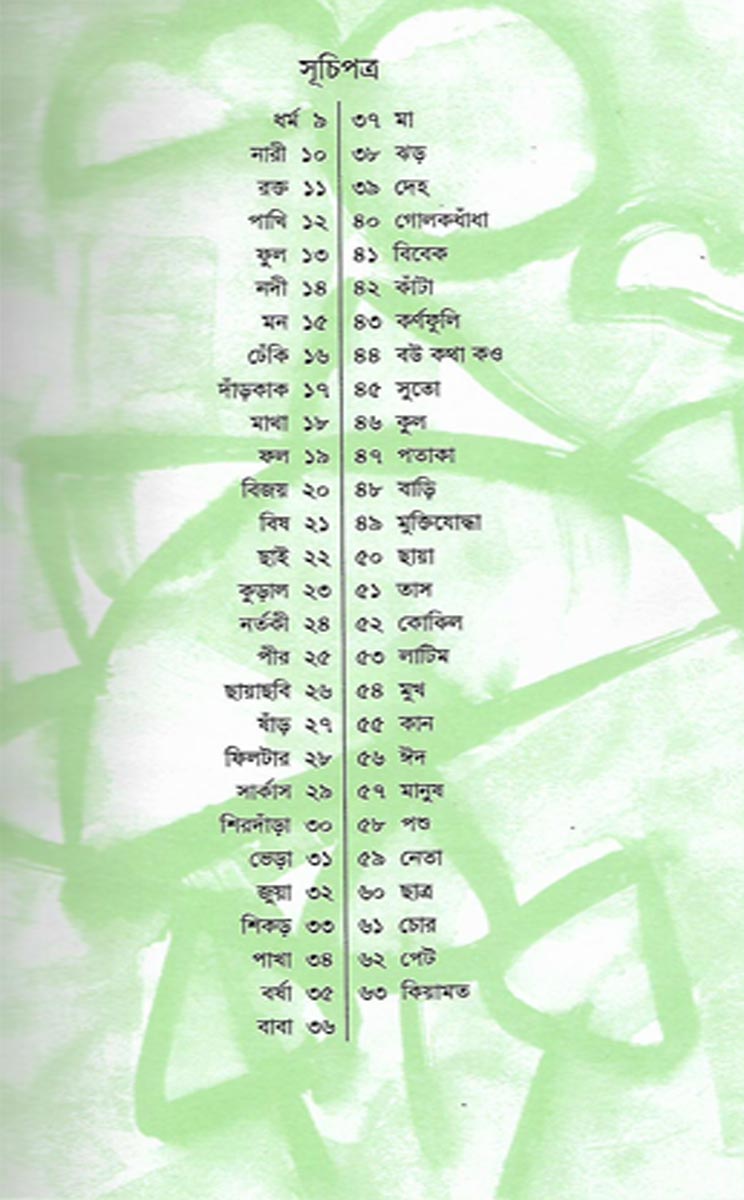 সূচিপত্র
ধর্ম ৯
নারী ১০
রক্ত ১১
পাখি ১২
ফুল ১৩
নদী ১৪
মন ১৫
ঢেঁকি ১৬
দাঁড়কাক ১৭
মাথা ১৮
ফল ১৯
বিজয় ২০
বিষ ২১
ছাই ২২
কুড়াল ২৩
নর্তকী ২৪
পীর ২৫
ছায়াছবি ২৬
ষাঁড় ২৭
ফিলটার ২৮
সার্কাস ২৯
শিরদাঁড়া ৩০
ভেড়া ৩১
জুয়া ৩২
শিকড় ৩৩
পাখা ৩৪
বর্ষা ৩৫
বাবা ৩৬
৩৭ মা
৩৮ ঝড়
৩৯ দেহ
৪০ গোলকধাঁধা
৪১ বিবেক
৪২ কাঁটা
৪৩ কর্ণফুলি
৪৪ বউ কথা কও
৪৫ সুতো
৪৬ কুল
৪৭ পতাকা
৪৮ বাড়ি
৪৯ মুক্তিযোদ্ধা
৫০ ছায়া
৫১ তাস
৫২ কোকিল
৫৩ লাটিম
৫৪ মুখ
৫৫ কান
৫৬ ঈদ
৫৭ মানুষ
৫৮ পশু
৫৯ নেতা
৬০ ছাত্র
৬১ চোর
৬২ পেট
৬৩ কিয়ামত